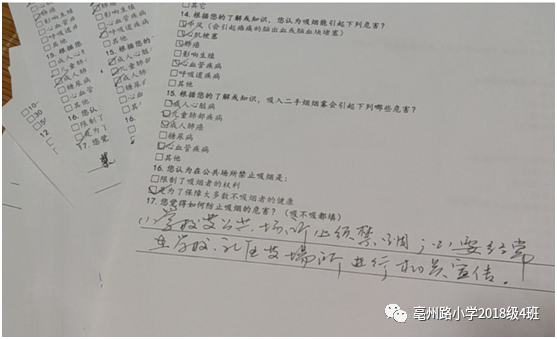 □其它
14. 根据您的了解或知识,您认为吸烟能引起下列危害?
中风(会引起瘫痪的脑出血或脑血块堵塞)
心肌梗塞
肺癌
□影响生殖
心血管疾病
□呼吸道疾病
□其他
15. 根据您的了解或知识,吸入二手烟烟雾会引起下列哪些危害?
成人心脏病
儿童肺部疾病
成人肺癌
□糖尿病
心血管疾病
□其他
16. 您认为在公共场所禁止吸烟是:
□限制了吸烟者的权利
是为了保障大多数不吸烟者的健康
17. 您觉得如何防止吸烟的危害?(吸不吸都填)
(1)学校及公共场所必须禁烟;(2)要经常
在学校、社区及场所进行相关宣传。
□影响生殖
□心血管疾
□呼吸道
□其他
15. 根据您
成人心
儿童肺
成人肺
□糖尿病
心血管
□其他
16. 您认
□限制了
是为了
17. 您
亳州路小学2018级4班